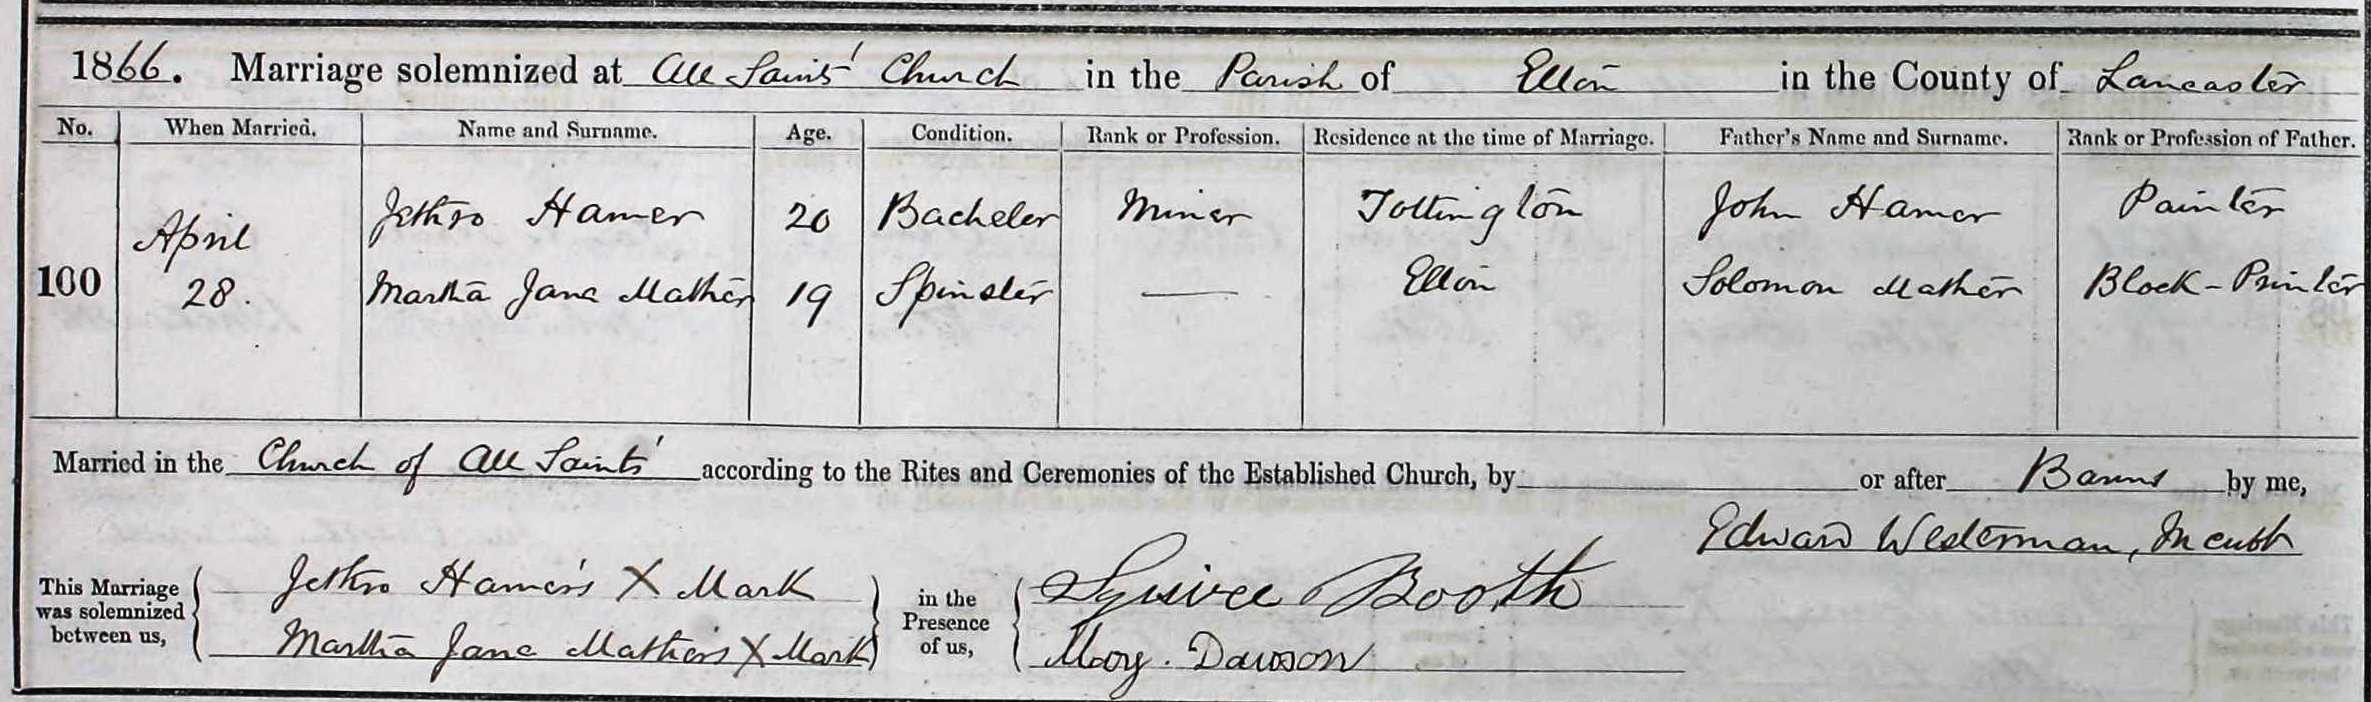 1866. Marriage solemnized at All Saints' Church in the Parish of Elton in the County of Lancaster
No. When Married. Name and Surname. Age. Condition. Rank or Profession. Residence at the time of Marriage. Father's Name and Surname. Rank or Profession of Father.
100 April 28. Jethro Hamer 20 Bachelor Miner Tottington John Hamer Painter
Martha Jane Mather 19 Spinster — Elton Solomon Mather Block-Printer
Married in the Church of All Saints' according to the Rites and Ceremonies of the Established Church, by or after Banns by me,
Edward Westerman, Incubt
This Marriage was solemnized between us,
Jethro Hamer's X Mark
Martha Jane Mather's X Mark
in the Presence of us,
Squire Booth
Mary. Dawson